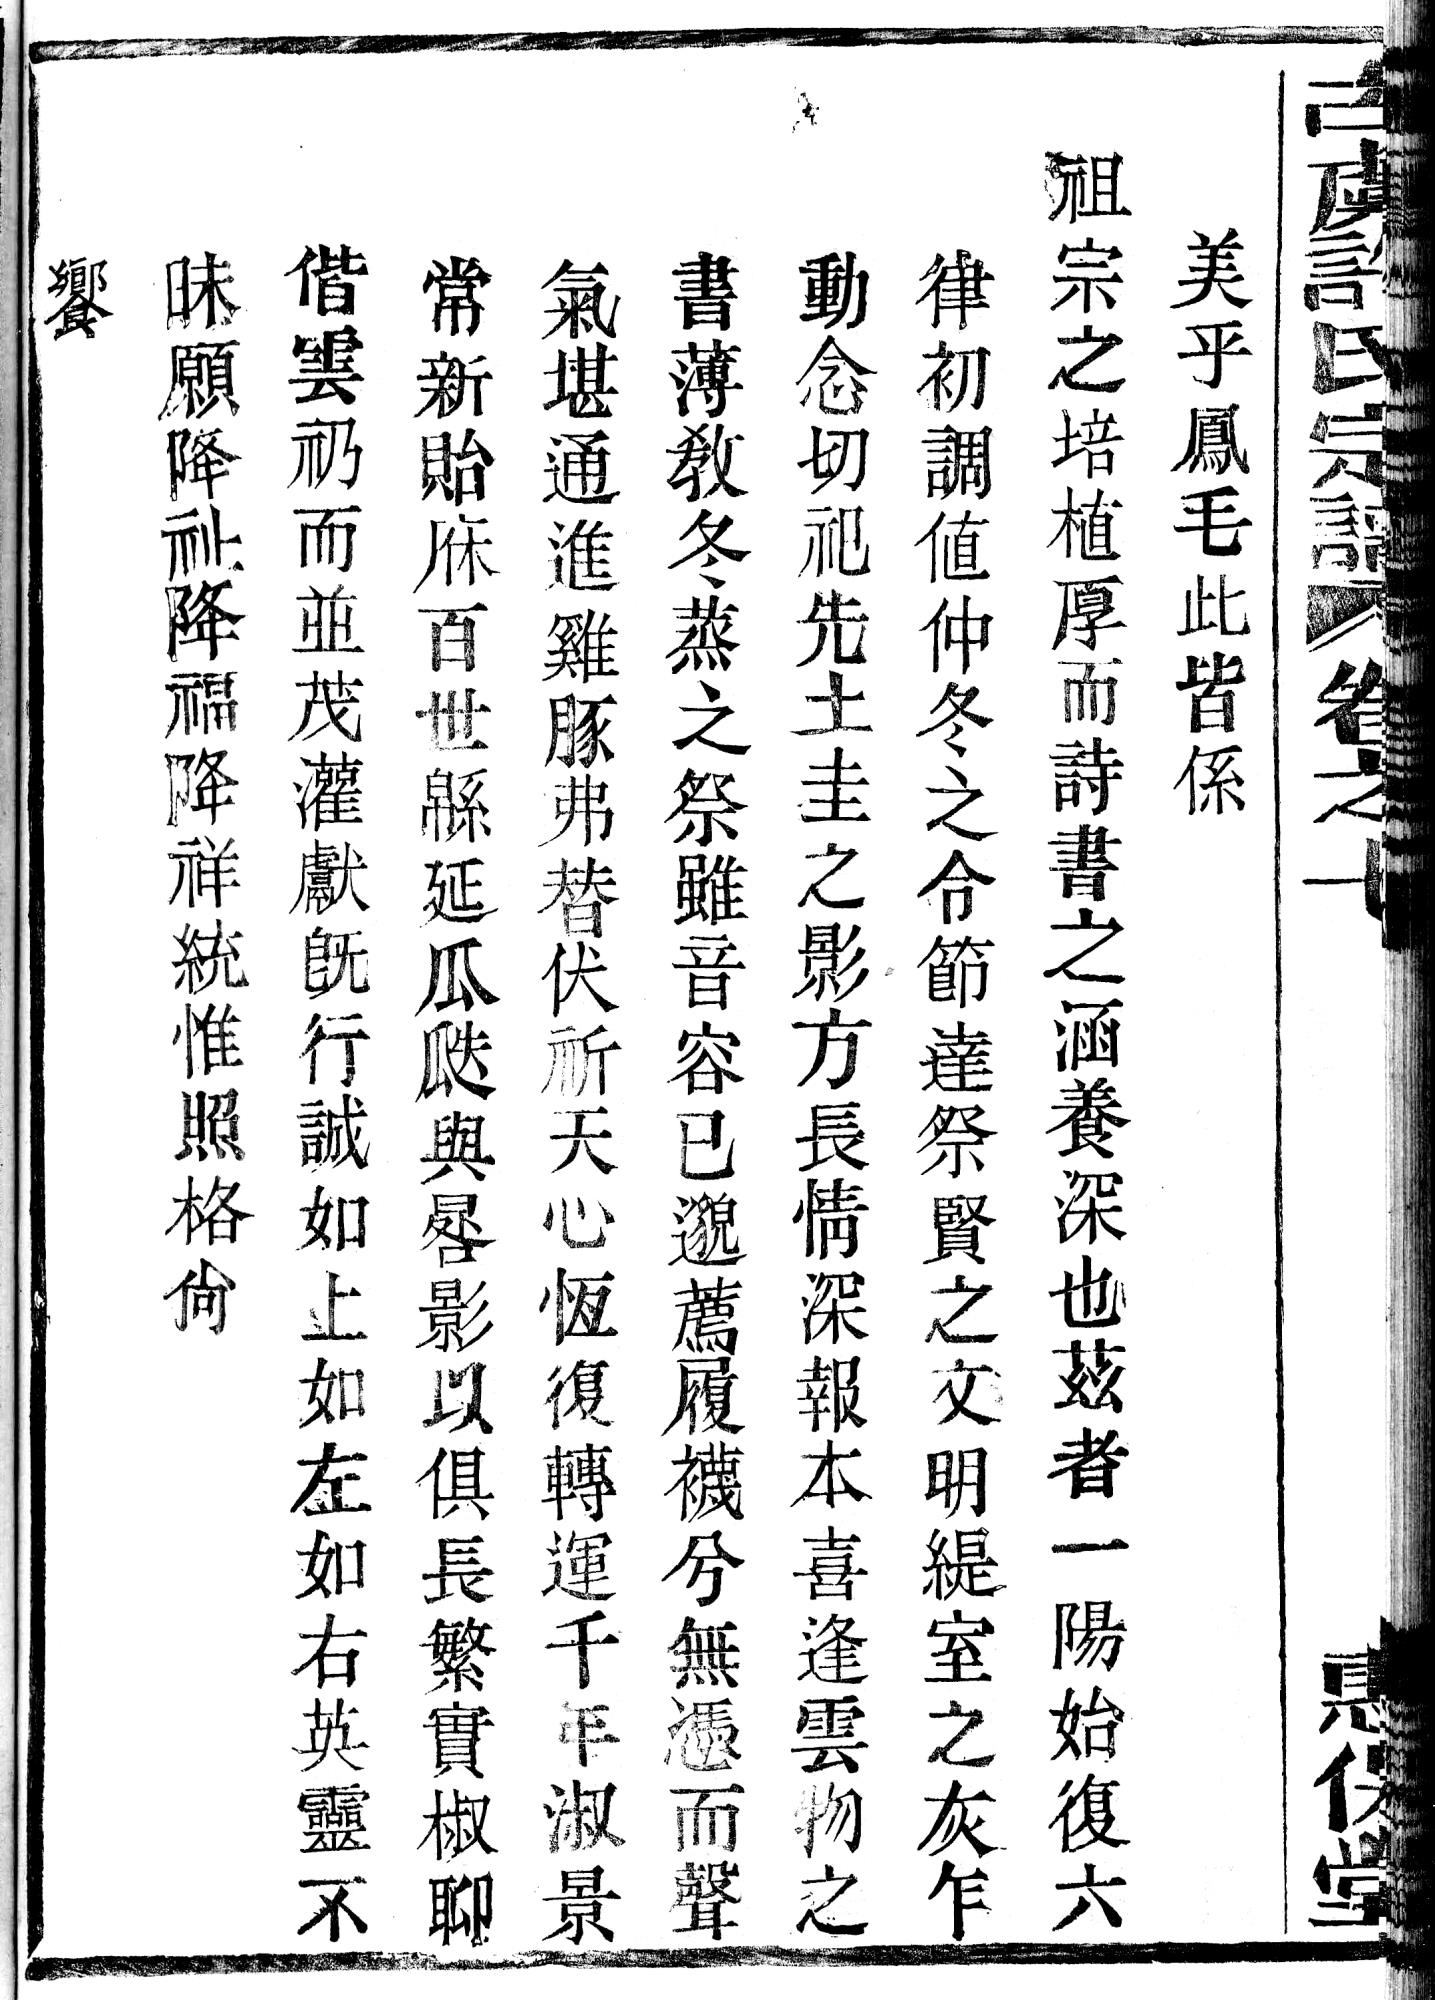 古虞許氏宗譜 卷之七 惠保堂
美乎鳳毛此皆係
祖宗之培植厚而詩書之涵養深也茲者一陽始復六
律初調値仲冬之令節達祭賢之文明緹室之灰乍
動念切祀先土圭之影方長情深報本喜逢雲物之
書薄敎冬蒸之祭雖音容已邈薦履襪兮無憑而聲
氣堪通進雞豚弗替伏祈天心恆復轉運千年淑景
常新貽庥百世緜延瓜瓞與晷影以俱長繁實椒聊
偕雲礽而並茂灌獻旣行誠如上如左如右英靈不
昧願降祉降福降祥統惟照格尙
饗